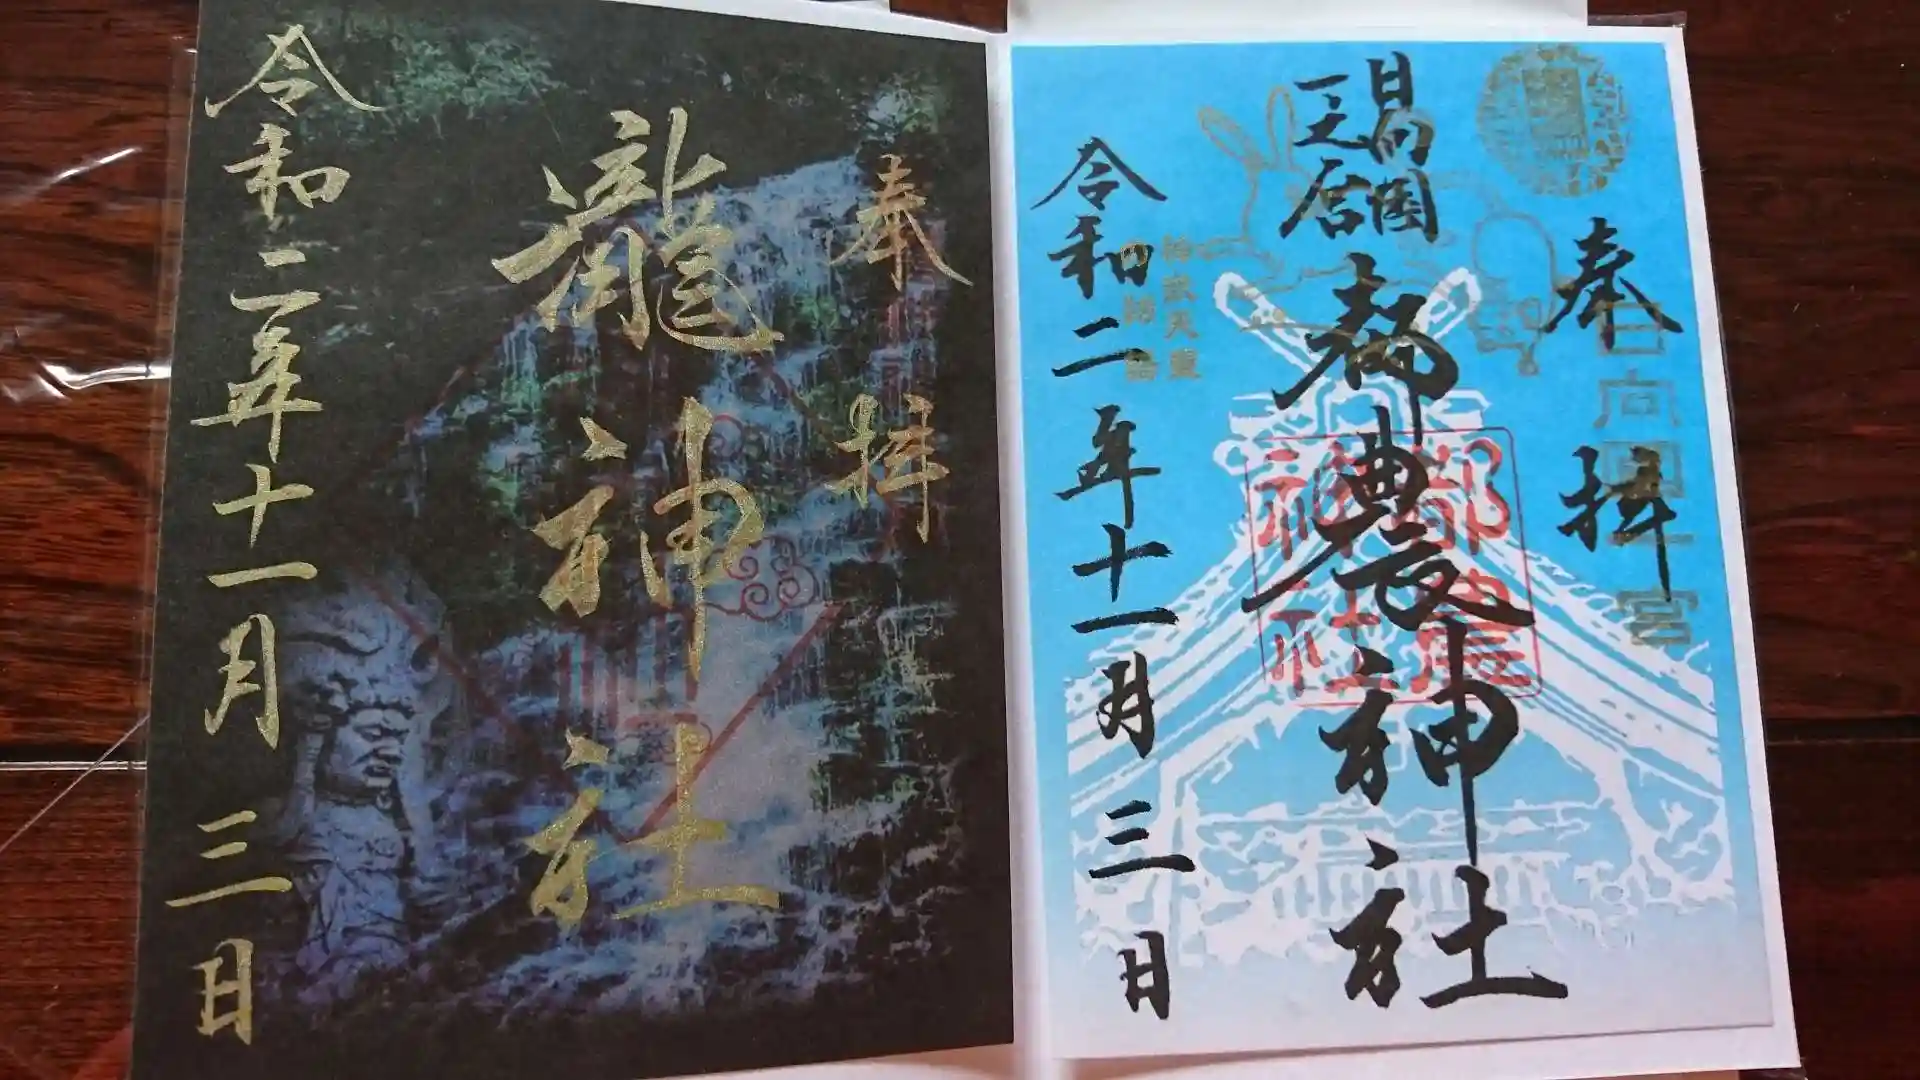 奉拝
瀧神社
令和二年十一月三日
奉拝
日向国一之宮
日向國
一之宮
都農神社
都農
神社
令和二年十一月三日